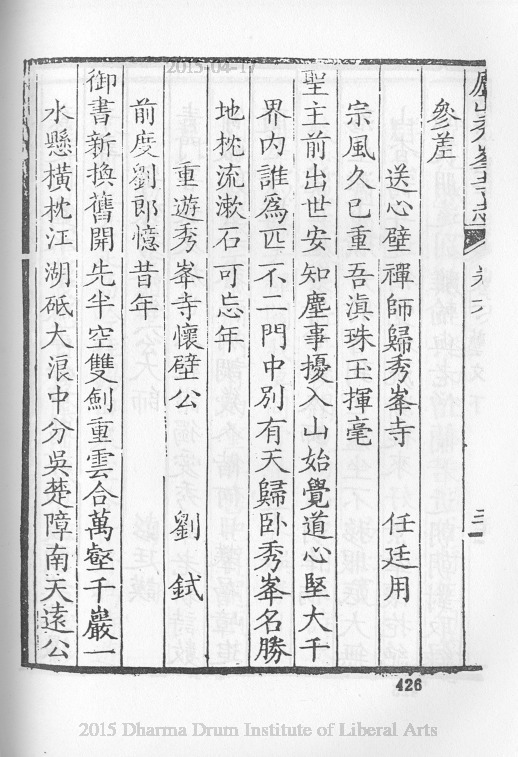 2015-04-17
廬山秀峯寺志
卷六
三
參差
送心壁禪師歸秀峯寺 任廷用
宗風久已重吾滇珠玉揮毫
聖主前出世安知塵事擾入山始覺道心堅大千
界內誰爲匹不二門中別有天歸卧秀峯名勝
地枕流漱石可忘年
重遊秀峯寺懷壁公 劉 𨱔
前度劉郎憶昔年
御書新換舊開先半空雙劍重雲合萬壑千巖一
水懸橫枕江湖砥大浪中分吳楚障南天遠公
426
2015 Dharma Drum Institute of Liberal Arts